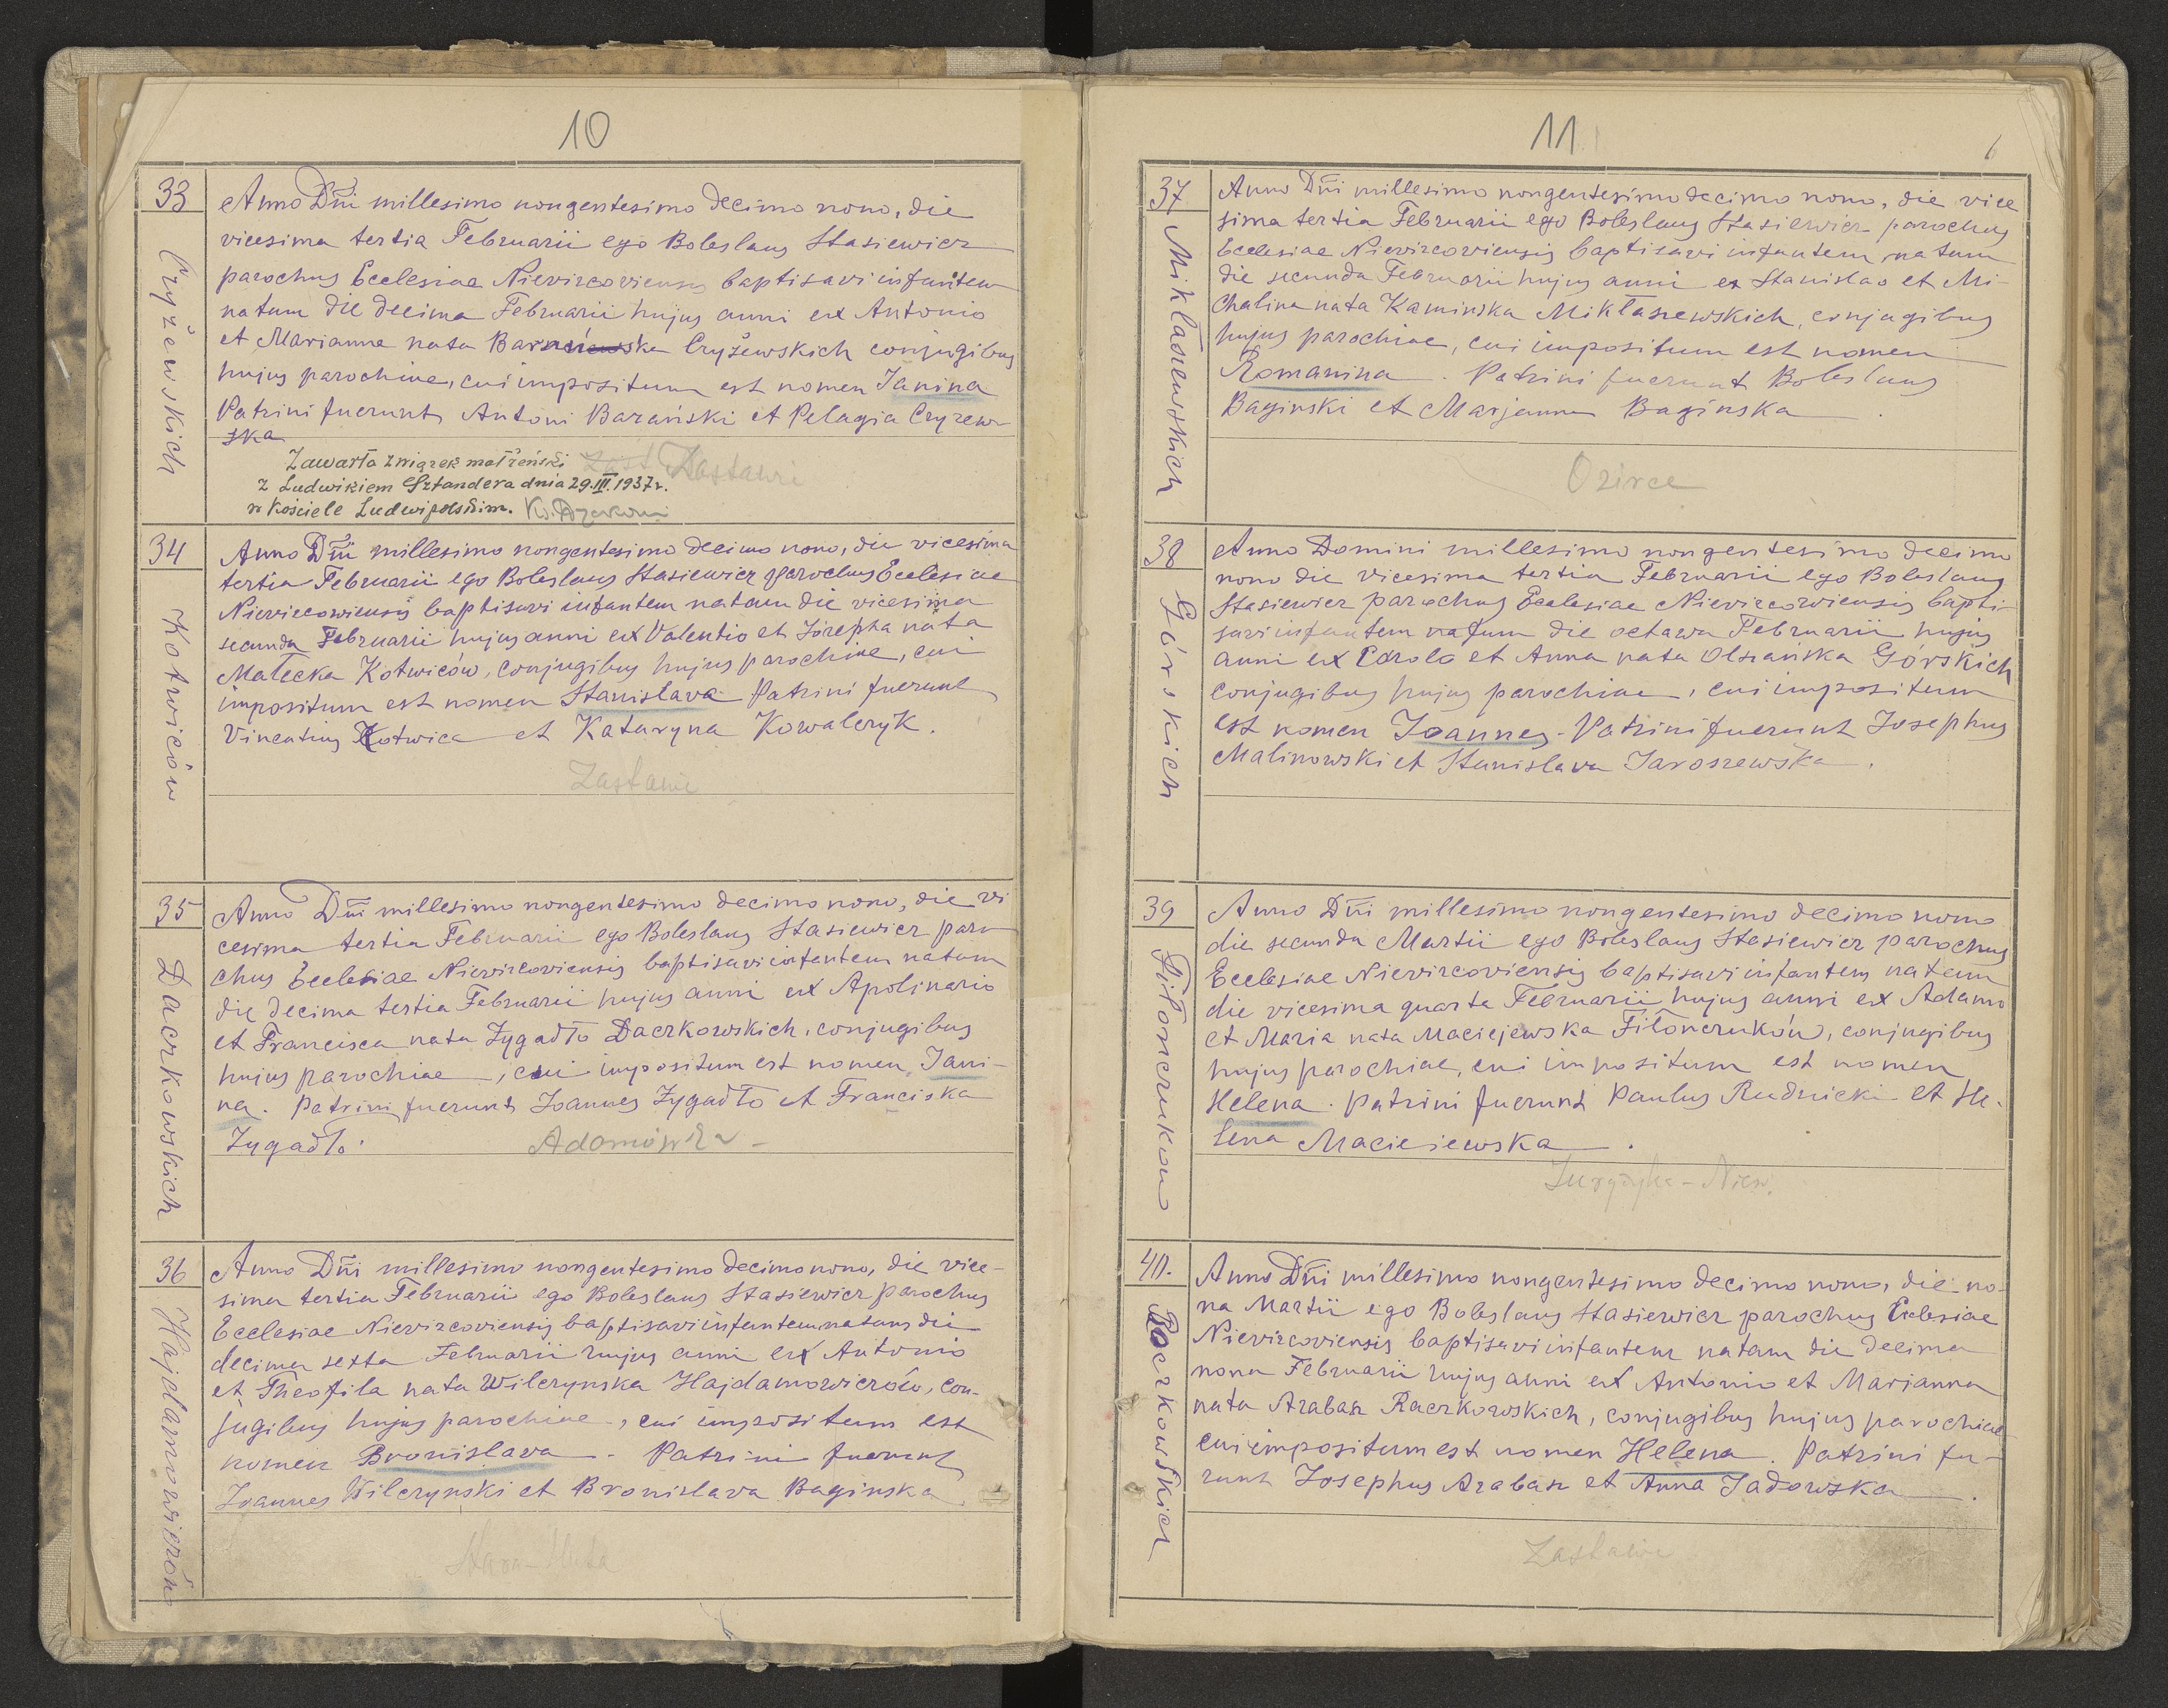 10
33
Cryżewskich
Anno Dni millesimo nongentesimo decimo nono, die
vicesima tertia Februarii ego Boleslaus Stasiewicz
parochus Ecclesiae Niewircoviensis baptisavi infantem
natum die decima Februarii hujus anni ex Antonio
et Marianna nata Barańska Cryżewskich conjugibus
hujus parochiae, cui impositum est nomen Janina
Patrini fuerunt Antoni Barański et Pelagia Cryzew-
ska
Zawarła związek małżeński
z Ludwikiem Sztandera dnia 29.III.1937r.
w Kościele Ludwipolskim.
Zastawie
34
Kotwiców
Anno Dni millesimo nongentesimo decimo nono, die vicesima
tertia Februarii ego Boleslaus Stasiewicz parochus Ecclesiae
Niewircowiensis baptisavi infantem natam die vicesima
secunda Februarii hujus anni ex Valentio et Józepha nata
Małecka Kotwiców, conjugibus hujus parochiae, cui
impositum est nomen Stanislava Patrini fuerunt
Vincentius Kotwica et Kataryna Kowalczyk.
Zastawie
35
Daczkowskich
Anno Dni millesimo nongentesimo decimo nono, die vi
cesima tertia Februarii ego Boleslaus Stasiewicz paro
chus Ecclesiae Niewircoviensis baptisavi infantem natam
die decima tertia Februarii hujus anni ex Apolinario
et Francisca nata Zygadło Daczkowskich, conjugibus
hujus parochiae, cui impositum est nomen Jani-
na. Patrini fuerunt Joannes Zygadło et Franciska
Zygadło.
Adamówka
36
Hajdamowiczów
Anno Dni millesimo nongentesimo decimo nono, die vice-
sima tertia Februarii ego Boleslaus Stasiewicz parochus
Ecclesiae Niewircoviensis baptisavi infantem natam die
decima sexta Februarii hujus anni ex Antonio
et Theofila nata Wilczynska Hajdamowiczów, con-
jugibus hujus parochiae, cui impositum est
nomen Bronislava. Patrini fuerunt
Joannes Wilczynski et Bronislava Baginska
Stara-Huta
11
37
Miklaszewskich
Anno Dni millesimo nongentesimo decimo nono, die vice
sima tertia Februarii ego Boleslaus Stasiewicz parochus
Ecclesiae Niewircoviensis baptisavi infantem natum
die secunda Februarii hujus anni ex Stanislao et Mi-
chalina nata Kaminska Miklaszewskich, conjugibus
hujus parochiae, cui impositum est nomen
Romanina. Patrini fuerunt Boleslaus
Baginski et Marjanna Baginska.
Ozirce
38
Górskich
Anno Domini millesimo nongentesimo decimo
nono die vicesima tertia Februarii ego Boleslaus
Stasiewicz parochus Ecclesiae Niewircowiensis bapti-
savi infantem natum die octawa Februarii hujus
anni ex Carolo et Anna nata Olszańska Górskich
conjugibus hujus parochiae, cui impositum
est nomen Joannes. Patrini fuerunt Josephus
Malinowski et Stanislava Jaroszewska.
39
Fiłonczuków
Anno Dni millesimo nongentesimo decimo nono
die secunda Martii ego Boleslaus Stasiewicz parochus
Ecclesiae Niewircoviensis baptisavi infantem natam
die vicesima quarta Februarii hujus anni ex Adamo
et Maria nata Maciejewska Fiłonczuków, conjugibus
hujus parochiae, cui impositum est nomen
Helena. Patrini fuerunt Paulus Rudnicki et He-
lena Maciejewska.
Juryzdyka - Niew.
40.
Raczkowskich
Anno Dni millesimo nongentesimo decimo nono, die no-
na Martii ego Boleslaus Stasiewicz parochus Ecclesiae
Niewircoviensis baptisavi infantem natam die decima
nona Februarii hujus anni ex Antonio et Marjanna
nata Arabaz Raczkowskich, conjugibus hujus parochiae
cui impositum est nomen Helena. Patrini fu-
runt Josephus Arabaz et Anna Sadowska.
Zastawie